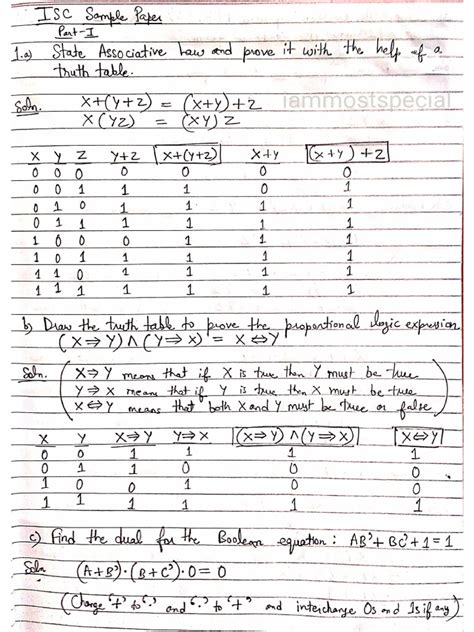 ISC Sample Paper
Part-I
1.a) State Associative Law and prove it with the help of a
truth table.
Soln. X+(Y+Z) = (X+Y)+Z iammostspecial
X(YZ) = (XY)Z
X Y Z Y+Z X+(Y+Z) X+Y (X+Y)+Z
0 0 0 0 0 0 0
0 0 1 1 1 0 1
0 1 0 1 1 1 1
0 1 1 1 1 1 1
1 0 0 0 1 1 1
1 0 1 1 1 1 1
1 1 0 1 1 1 1
1 1 1 1 1 1 1
b) Draw the truth table to prove the propotional logic expression
(X⇒Y)∧(Y⇒X) = X⇔Y
Soln. X⇒Y means that if X is true then Y must be true
Y⇒X means that if Y is true then X must be true
X⇔Y means that both X and Y must be true or false
X Y X⇒Y Y⇒X (X⇒Y)∧(Y⇒X) X⇔Y
0 0 1 1 1 1
0 1 1 0 0 0
1 0 0 1 0 0
1 1 1 1 1 1
c) Find the dual for the Boolean equation: AB'+BC'+1=1
Soln (A+B')·(B+C')·0=0
(Change '+' to '·' and '·' to '+' and interchange 0s and 1s if any)